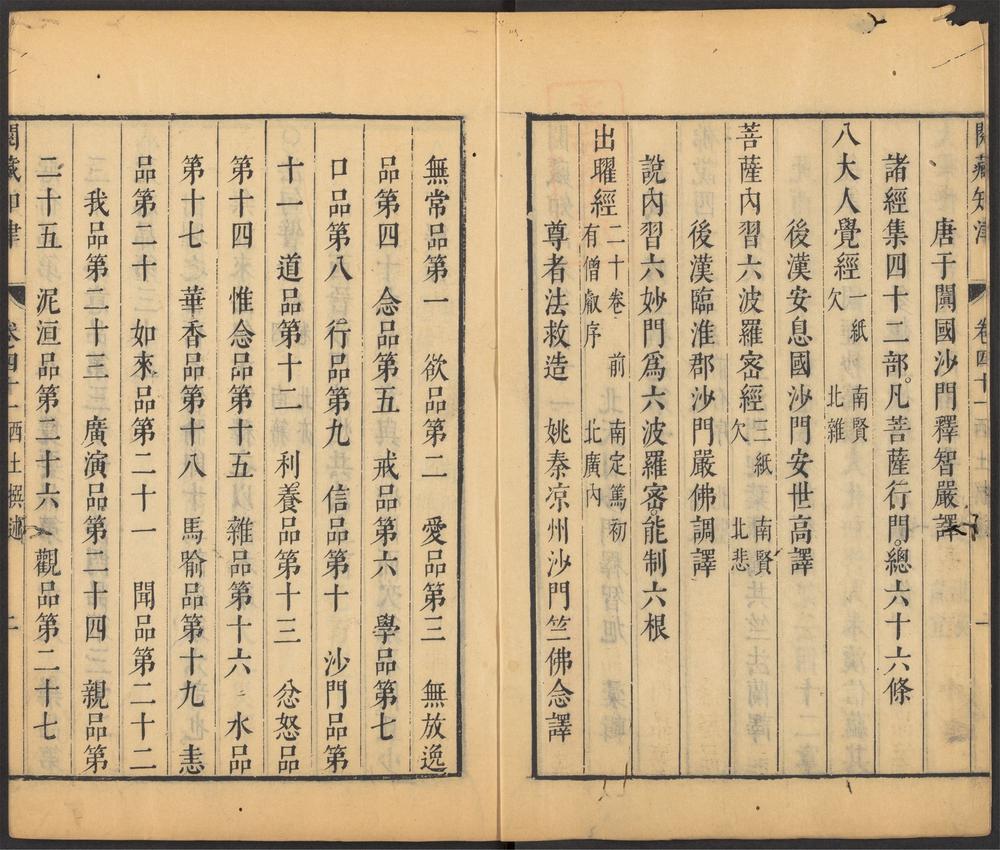 閱藏知津 卷四十一 西土撰述 一
唐于闐國沙門釋智嚴譯
諸經集四十二部。凡菩薩行門。總六十六條
八大人覺經 一紙欠 南賢北雜
後漢安息國沙門安世高譯
菩薩內習六波羅密經 三紙欠 南賢北悲
後漢臨淮郡沙門嚴佛調譯
說內習六妙門爲六波羅密。能制六根
出曜經 二十卷有僧叡序 前 南定篤初北廣內
尊者法救造 姚秦凉州沙門竺佛念譯
無常品第一 欲品第二 愛品第三 無放逸
品第四 念品第五 戒品第六 學品第七
口品第八 行品第九 信品第十 沙門品第
十一 道品第十二 利養品第十三 忿怒品
第十四 惟念品第十五 雜品第十六 水品
第十七 華香品第十八 馬喻品第十九 恚
品第二十 如來品第二十一 聞品第二十二
我品第二十三 廣演品第二十四 親品第
二十五 泥洹品第二十六 觀品第二十七
閱藏知津 卷四十一 西土撰述 二